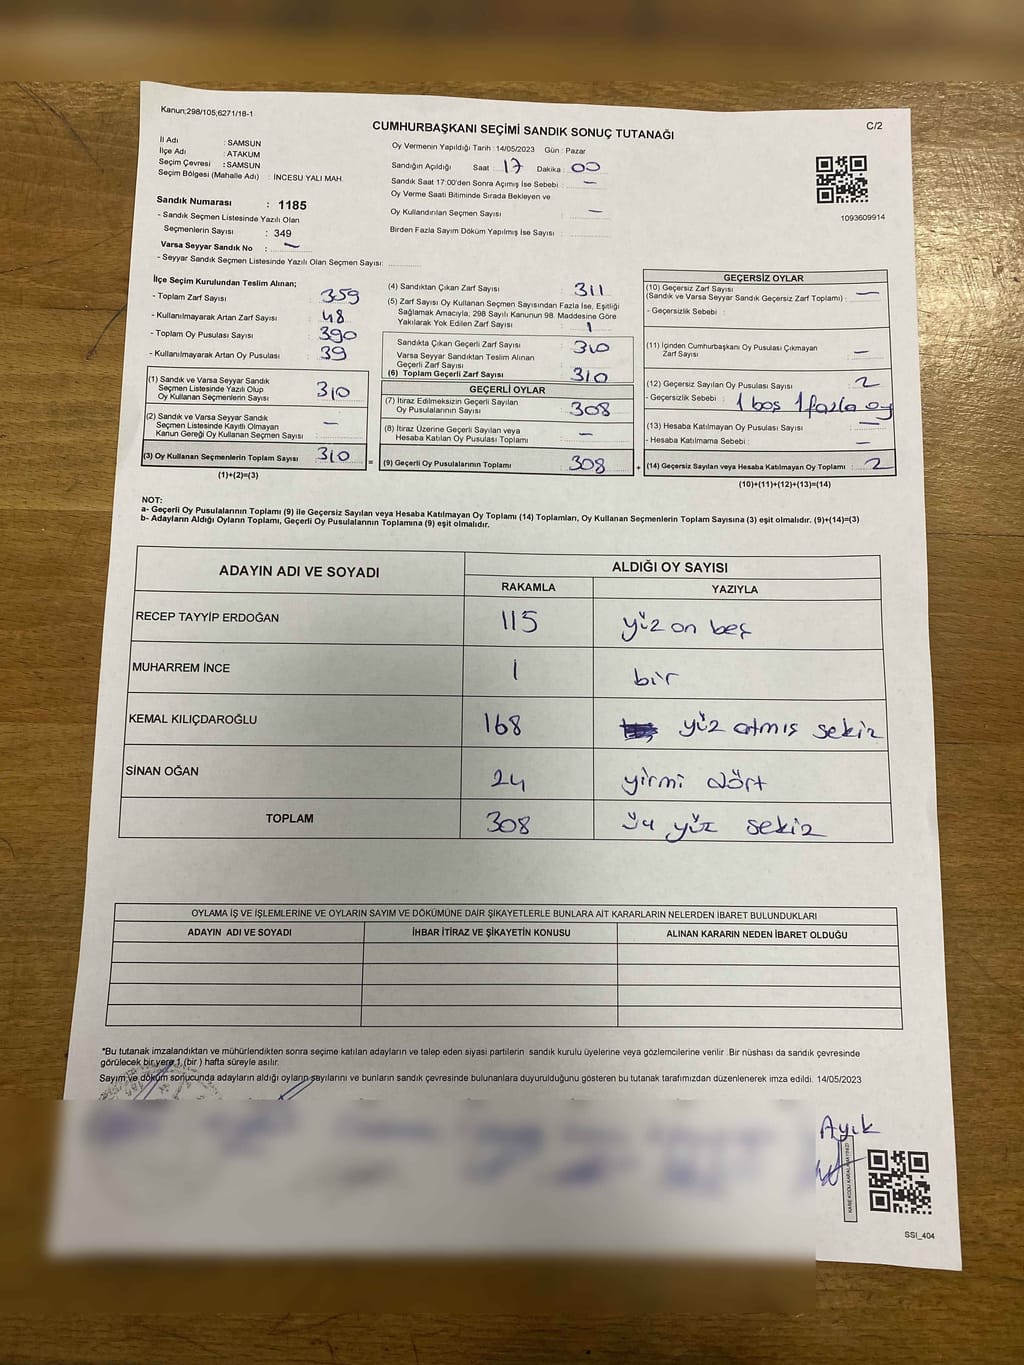 Kanun;298/105;6271/18-1
C/2
CUMHURBAŞKANI SEÇİMİ SANDIK SONUÇ TUTANAĞI
İl Adı : SAMSUN
İlçe Adı : ATAKUM
Seçim Çevresi : SAMSUN
Seçim Bölgesi (Mahalle Adı) : İNCESU YALI MAH.
Oy Vermenin Yapıldığı Tarih : 14/05/2023 Gün : Pazar
Sandığın Açıldığı Saat : 17 Dakika : 00
Sandık Saat 17:00'den Sonra Açımış İse Sebebi : —
Oy Verme Saati Bitiminde Sırada Bekleyen ve
Oy Kullandırılan Seçmen Sayısı : —
Birden Fazla Sayım Döküm Yapılmış İse Sayısı :
1093609914
Sandık Numarası : 1185
- Sandık Seçmen Listesinde Yazılı Olan
Seçmenlerin Sayısı : 349
Varsa Seyyar Sandık No : —
- Seyyar Sandık Seçmen Listesinde Yazılı Olan Seçmen Sayısı:
İlçe Seçim Kurulundan Teslim Alınan;
- Toplam Zarf Sayısı : 359
- Kullanılmayarak Artan Zarf Sayısı : 48
- Toplam Oy Pusulası Sayısı : 390
- Kullanılmayarak Artan Oy Pusulası : 39
(1) Sandık ve Varsa Seyyar Sandık
Seçmen Listesinde Yazılı Olup
Oy Kullanan Seçmenlerin Sayısı : 310
(2) Sandık ve Varsa Seyyar Sandık
Seçmen Listesinde Kayıtlı Olmayan
Kanun Gereği Oy Kullanan Seçmen Sayısı : —
(3) Oy Kullanan Seçmenlerin Toplam Sayısı : 310
(1)+(2)=(3)
(4) Sandıktan Çıkan Zarf Sayısı : 311
(5) Zarf Sayısı Oy Kullanan Seçmen Sayısından Fazla İse, Eşitliği
Sağlamak Amacıyla, 298 Sayılı Kanunun 98. Maddesine Göre
Yakılarak Yok Edilen Zarf Sayısı : 1
Sandıkta Çıkan Geçerli Zarf Sayısı : 310
Varsa Seyyar Sandıktan Teslim Alınan
Geçerli Zarf Sayısı :
(6) Toplam Geçerli Zarf Sayısı : 310
GEÇERLİ OYLAR
(7) İtiraz Edilmeksizin Geçerli Sayılan
Oy Pusulalarının Sayısı : 308
(8) İtiraz Üzerine Geçerli Sayılan veya
Hesaba Katılan Oy Pusulası Toplamı : —
= (9) Geçerli Oy Pusulalarının Toplamı : 308
GEÇERSİZ OYLAR
(10) Geçersiz Zarf Sayısı
(Sandık ve Varsa Seyyar Sandık Geçersiz Zarf Toplamı) : —
- Geçersizlik Sebebi :
(11) İçinden Cumhurbaşkanı Oy Pusulası Çıkmayan
Zarf Sayısı : —
(12) Geçersiz Sayılan Oy Pusulası Sayısı : 2
- Geçersizlik Sebebi : 1 boş 1 fazla oy
(13) Hesaba Katılmayan Oy Pusulası Sayısı : —
- Hesaba Katılmama Sebebi : —
+ (14) Geçersiz Sayılan veya Hesaba Katılmayan Oy Toplamı : 2
(10)+(11)+(12)+(13)=(14)
NOT:
a- Geçerli Oy Pusulalarının Toplamı (9) ile Geçersiz Sayılan veya Hesaba Katılmayan Oy Toplamı (14) Toplamları, Oy Kullanan Seçmenlerin Toplam Sayısına (3) eşit olmalıdır. (9)+(14)=(3)
b- Adayların Aldığı Oyların Toplamı, Geçerli Oy Pusulalarının Toplamına (9) eşit olmalıdır.
ADAYIN ADI VE SOYADI ALDIĞI OY SAYISI
RAKAMLA YAZIYLA
RECEP TAYYİP ERDOĞAN 115 yüz on beş
MUHARREM İNCE 1 bir
KEMAL KILIÇDAROĞLU 168 yüz atmış sekiz
SİNAN OĞAN 24 yirmi dört
TOPLAM 308 üç yüz sekiz
OYLAMA İŞ VE İŞLEMLERİNE VE OYLARIN SAYIM VE DÖKÜMÜNE DAİR ŞİKAYETLERLE BUNLARA AİT KARARLARIN NELERDEN İBARET BULUNDUKLARI
ADAYIN ADI VE SOYADI İHBAR İTİRAZ VE ŞİKAYETİN KONUSU ALINAN KARARIN NEDEN İBARET OLDUĞU
*Bu tutanak imzalandıktan ve mühürlendikten sonra seçime katılan adayların ve talep eden siyasi partilerin sandık kurulu üyelerine veya gözlemcilerine verilir .Bir nüshası da sandık çevresinde
görülecek bir yere 1 (bir ) hafta süreyle asılır.
Sayım ve döküm sonucunda adayların aldığı oyların sayılarını ve bunların sandık çevresinde bulunanlara duyurulduğunu gösteren bu tutanak tarafımızdan düzenlenerek imza edildi. 14/05/2023
Ayık
SSI_404